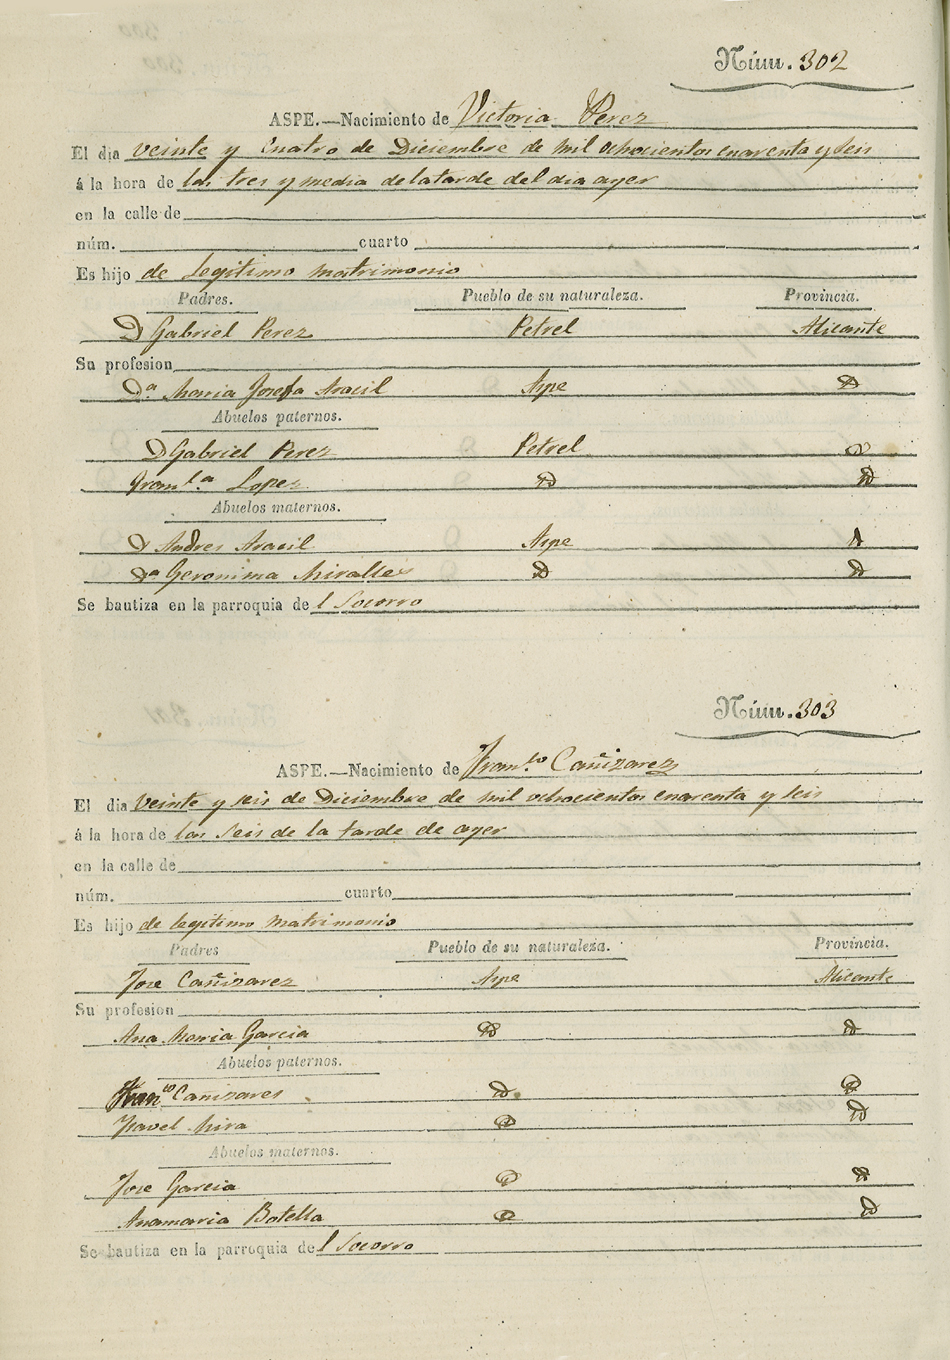 Núm. 302
ASPE.—Nacimiento de Victoria Perez
El dia veinte y cuatro de Diciembre de mil ochocientos cuarenta y seis
á la hora de las tres y media de la tarde del dia ayer
en la calle de
núm. cuarto
Es hijo de legitimo matrimonio
Padres. Pueblo de su naturaleza. Provincia.
D Gabriel Perez Petrel Alicante
Su profesion
Dª Maria Josefa Aracil Aspe D
Abuelos paternos.
D Gabriel Perez Petrel D
Franᶜᵃ Lopez D D
Abuelos maternos.
D Andres Aracil Aspe D
Dª Geronima Miralles D D
Se bautiza en la parroquia del Socorro
Núm. 303
ASPE.—Nacimiento de Franᶜᵒ Cañizarez
El dia veinte y seis de Diciembre de mil ochocientos cuarenta y seis
á la hora de las seis de la tarde de ayer
en la calle de
núm. cuarto
Es hijo de legitimo matrimonio
Padres Pueblo de su naturaleza. Provincia.
Jose Cañizarez Aspe Alicante
Su profesion
Ana Maria Garcia D D
Abuelos paternos.
Franᶜᵒ Cañizares D D
Ysavel Mira D D
Abuelos maternos.
Jose Garcia D D
Anamaria Botella D D
Se bautiza en la parroquia del Socorro